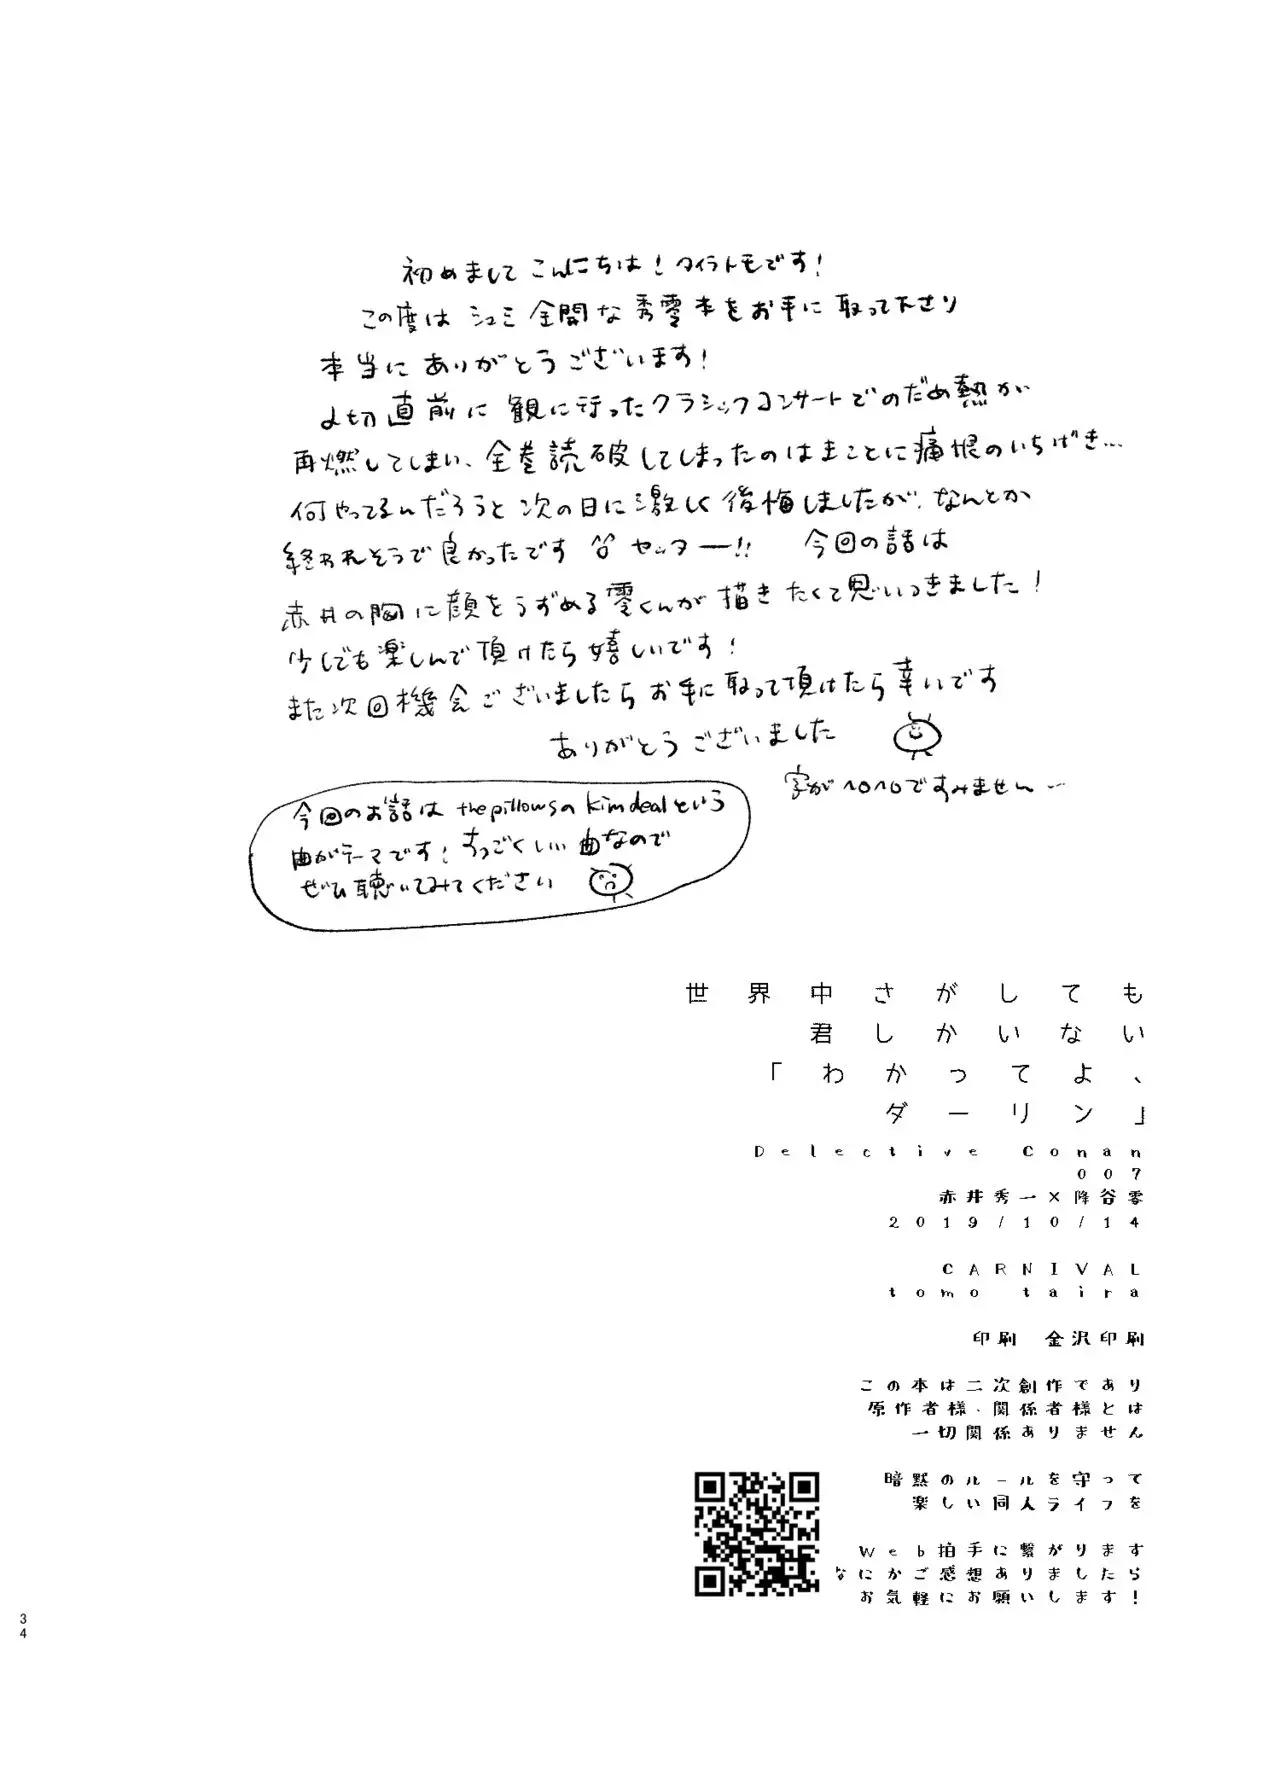 初めまして こんにちは！タイラトモです！
この度は シュミ 全開な秀零本をお手に 取って下さり
本当に ありがとうございます！
〆切直前に 観に行ったクラシックコンサートでのだめ熱が
再燃してしまい、全巻読破してしまったのはまことに痛恨のいちげき…
何やってるんだろうと 次の日に激しく後悔しましたが、なんとか
終われそうで良かったです ヤッター!! 今回の話は
赤井の胸に顔をうずめる零くんが描きたくて思いつきました！
少しでも楽しんで頂けたら嬉しいです！
また次回機会ございましたら お手に取って頂けたら幸いです
ありがとうございました
字がヘロヘロですみません…
今回のお話は the pillowsの kim dealという
曲がテーマです！すっごくいい曲なので
ぜひ聴いてみてください
世界中さがしても
君しかいない
「わかってよ、
ダーリン」
Delective Conan
007
赤井秀一×降谷零
2019/10/14
CARNIVAL
tomo taira
印刷 金沢印刷
この本は二次創作であり
原作者様・関係者様とは
一切関係ありません
暗黙のルールを守って
楽しい同人ライフを
Web拍手に繋がります
なにかご感想ありましたら
お気軽にお願いします！
34